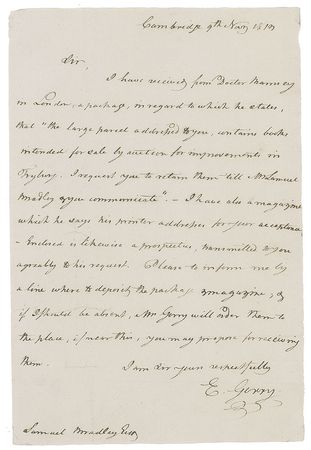 Cambridge 9th Novr 1810
Sir,
I have received from Doctor
in London, a package, in regard to which he states,
that "the large parcel addressed to you, contains books
intended for sale by auction for improvements in
Fryburg. I request you to retain them till Mr Samuel
Bradley & you communicate". - I have also a magazine
which he says his printer addresses for your acceptance
- Enclosed is likewise a prospectus, transmitted to you
agreably to his request. Please to inform me by
a line where to deposit the package & magazine, &
if I should be absent, Mrs Gerry will order them to
the place, if near this, you may propose for receiving
them.
I am Sir yours respectfully
E. Gerry
Samuel Bradley Esqr